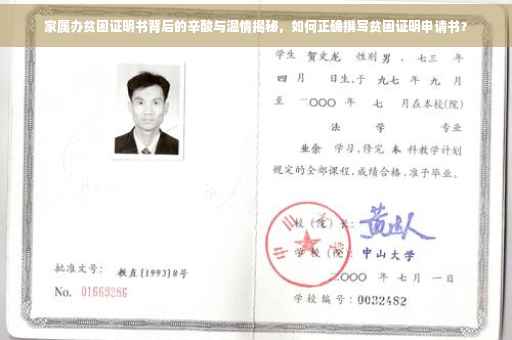 家属办贫困证明书背后的辛酸与温情揭秘，如何正确撰写贫困证明申请书？
学生 贺文龙 性别 男 、七三 年
四 月 日生,于 九七 年 九 月
至 二〇〇〇 年 七 月在本校(院)
法 学 专业
业余 学习,修完 本 科教学计划
规定的全部课程,成绩合格,准予毕业。
校（院）长:
学 校（院） 中山大学
二〇〇〇 年 七 月 一 日
批准文号: 教直(1993)8号
No. 01663286
学校编号: 0032482